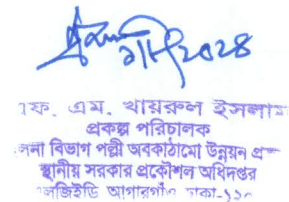 ২০২৪
এফ. এম. খায়রুল ইসলাম
প্রকল্প পরিচালক
বিভাগ পল্লী অবকাঠামো উন্নয়ন
স্থানীয় সরকার প্রকৌশল অধিদপ্তর
এলজিইডি আগারগাঁও ঢাকা-১২০